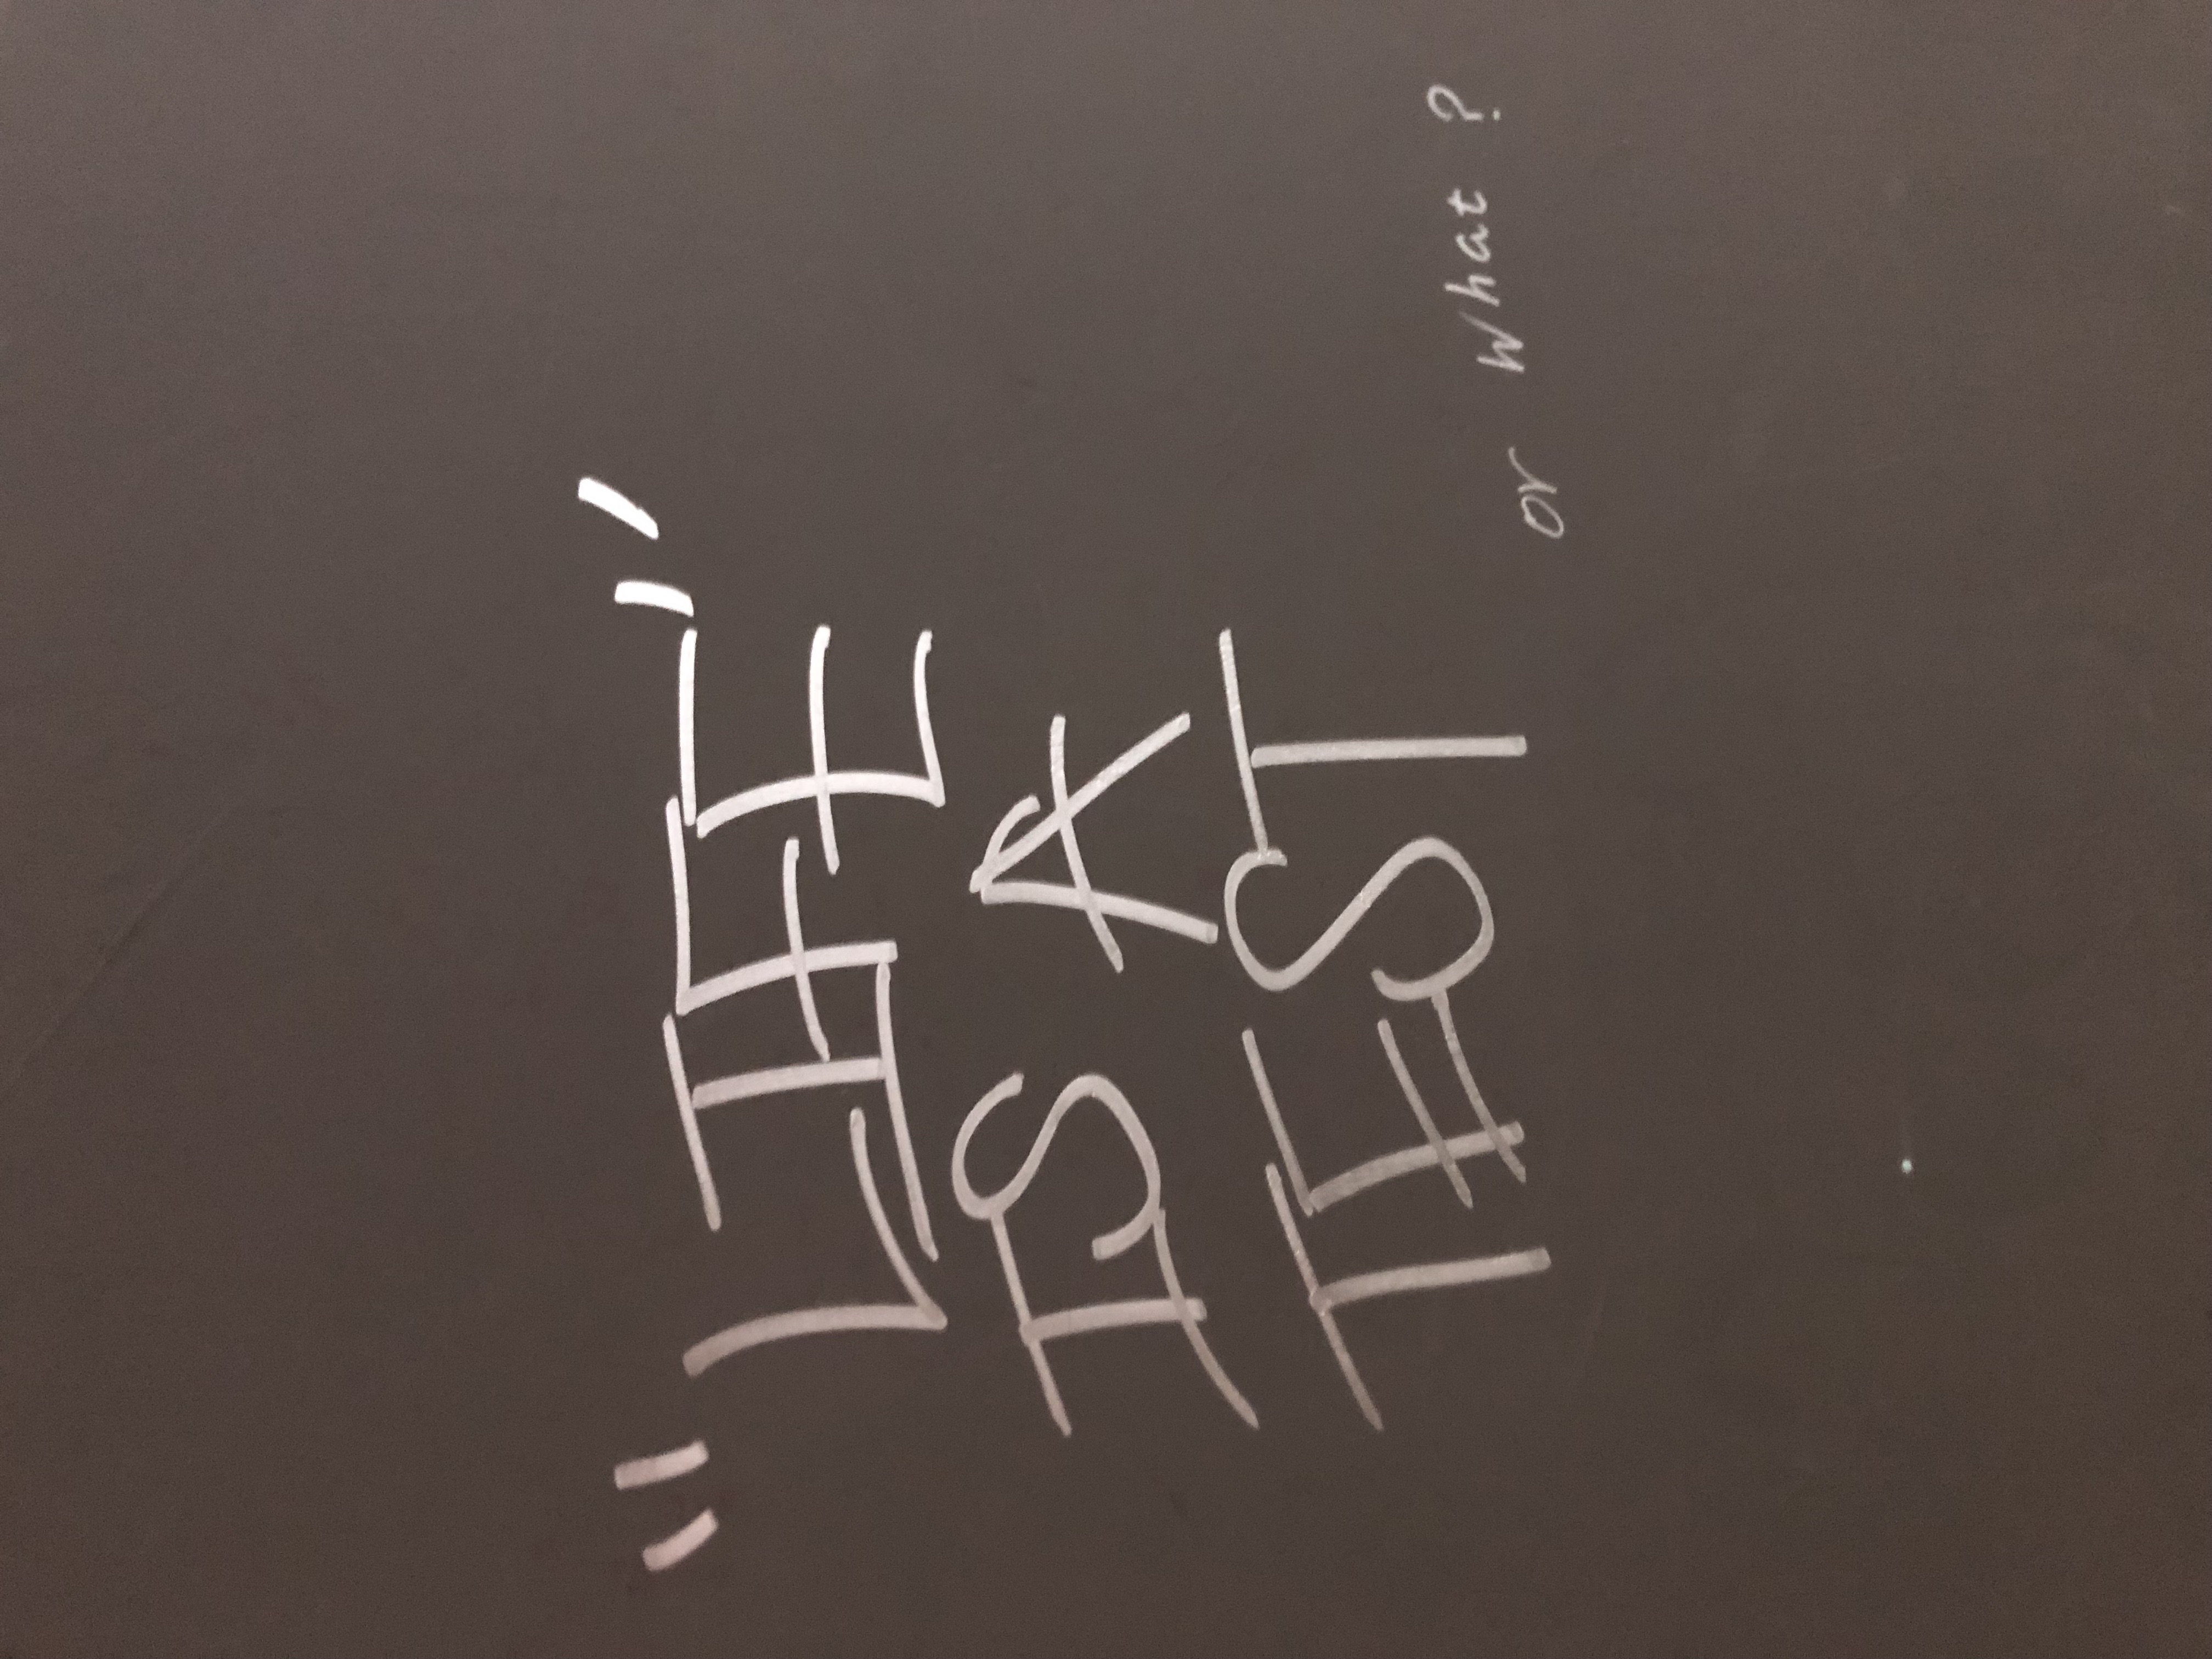 "LIFE"
IS A
TEST
or what ?